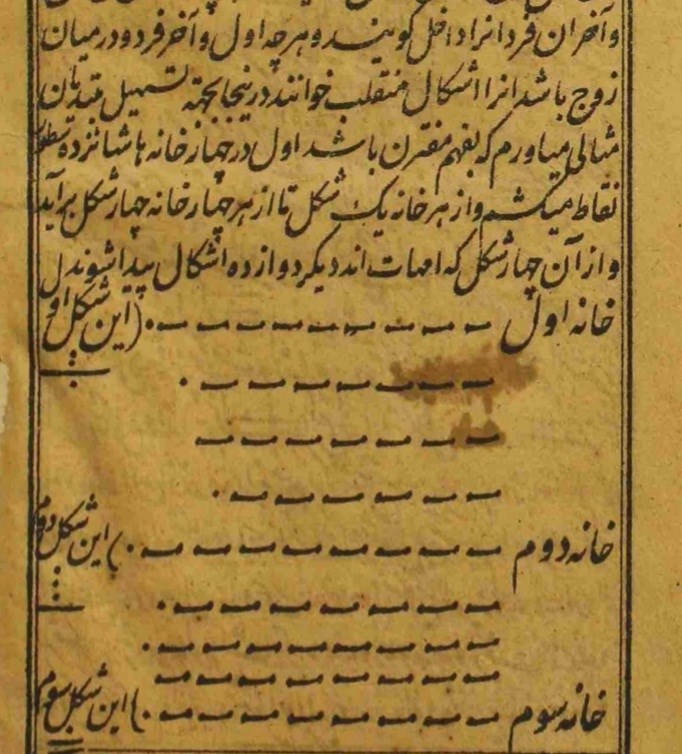 و آخر ان فرد انرا داخل گویند و هرچه اول و آخر فرد و در میان
زوج باشد انرا اشکال منقلب خوانند در نیجا بجهته تسهیل مبتدیان
مثالی میاورم که بفهم مقترن باشد اول در چهار خانه ها شانزده سطور
نقاط میکشم و از هر خانه یک شکل تا از هر چهار خانه چهار شکل برآید
و از آن چهار شکل که امهات اند دیگر دوازده اشکال پیدا شوند
خانه اول (این شکل او
خانه دوم (این شکل دوم
خانه سوم (این شکل سوم